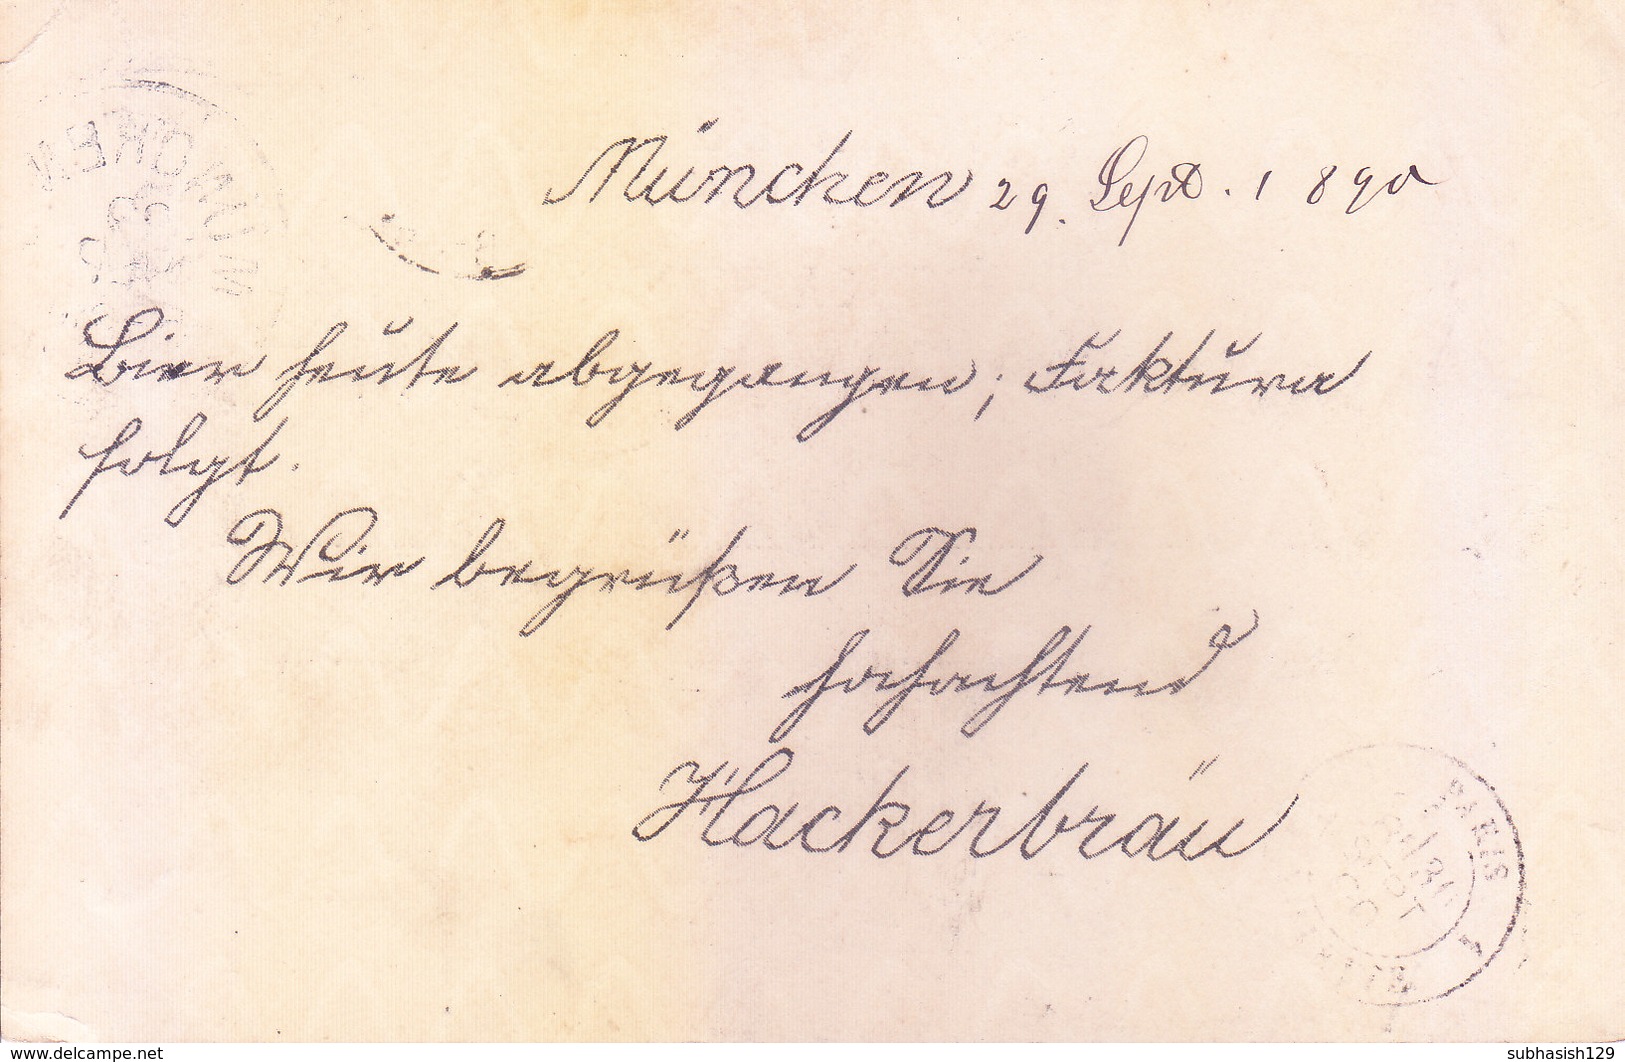 MÜNCHEN
München 29. Sept. 1890
Bier heute abgegangen; Faktura
folgt.
Wir begrüßen Sie
hochachtend
Hackerbräu
PARIS
www.delcampe.net
subhasish129